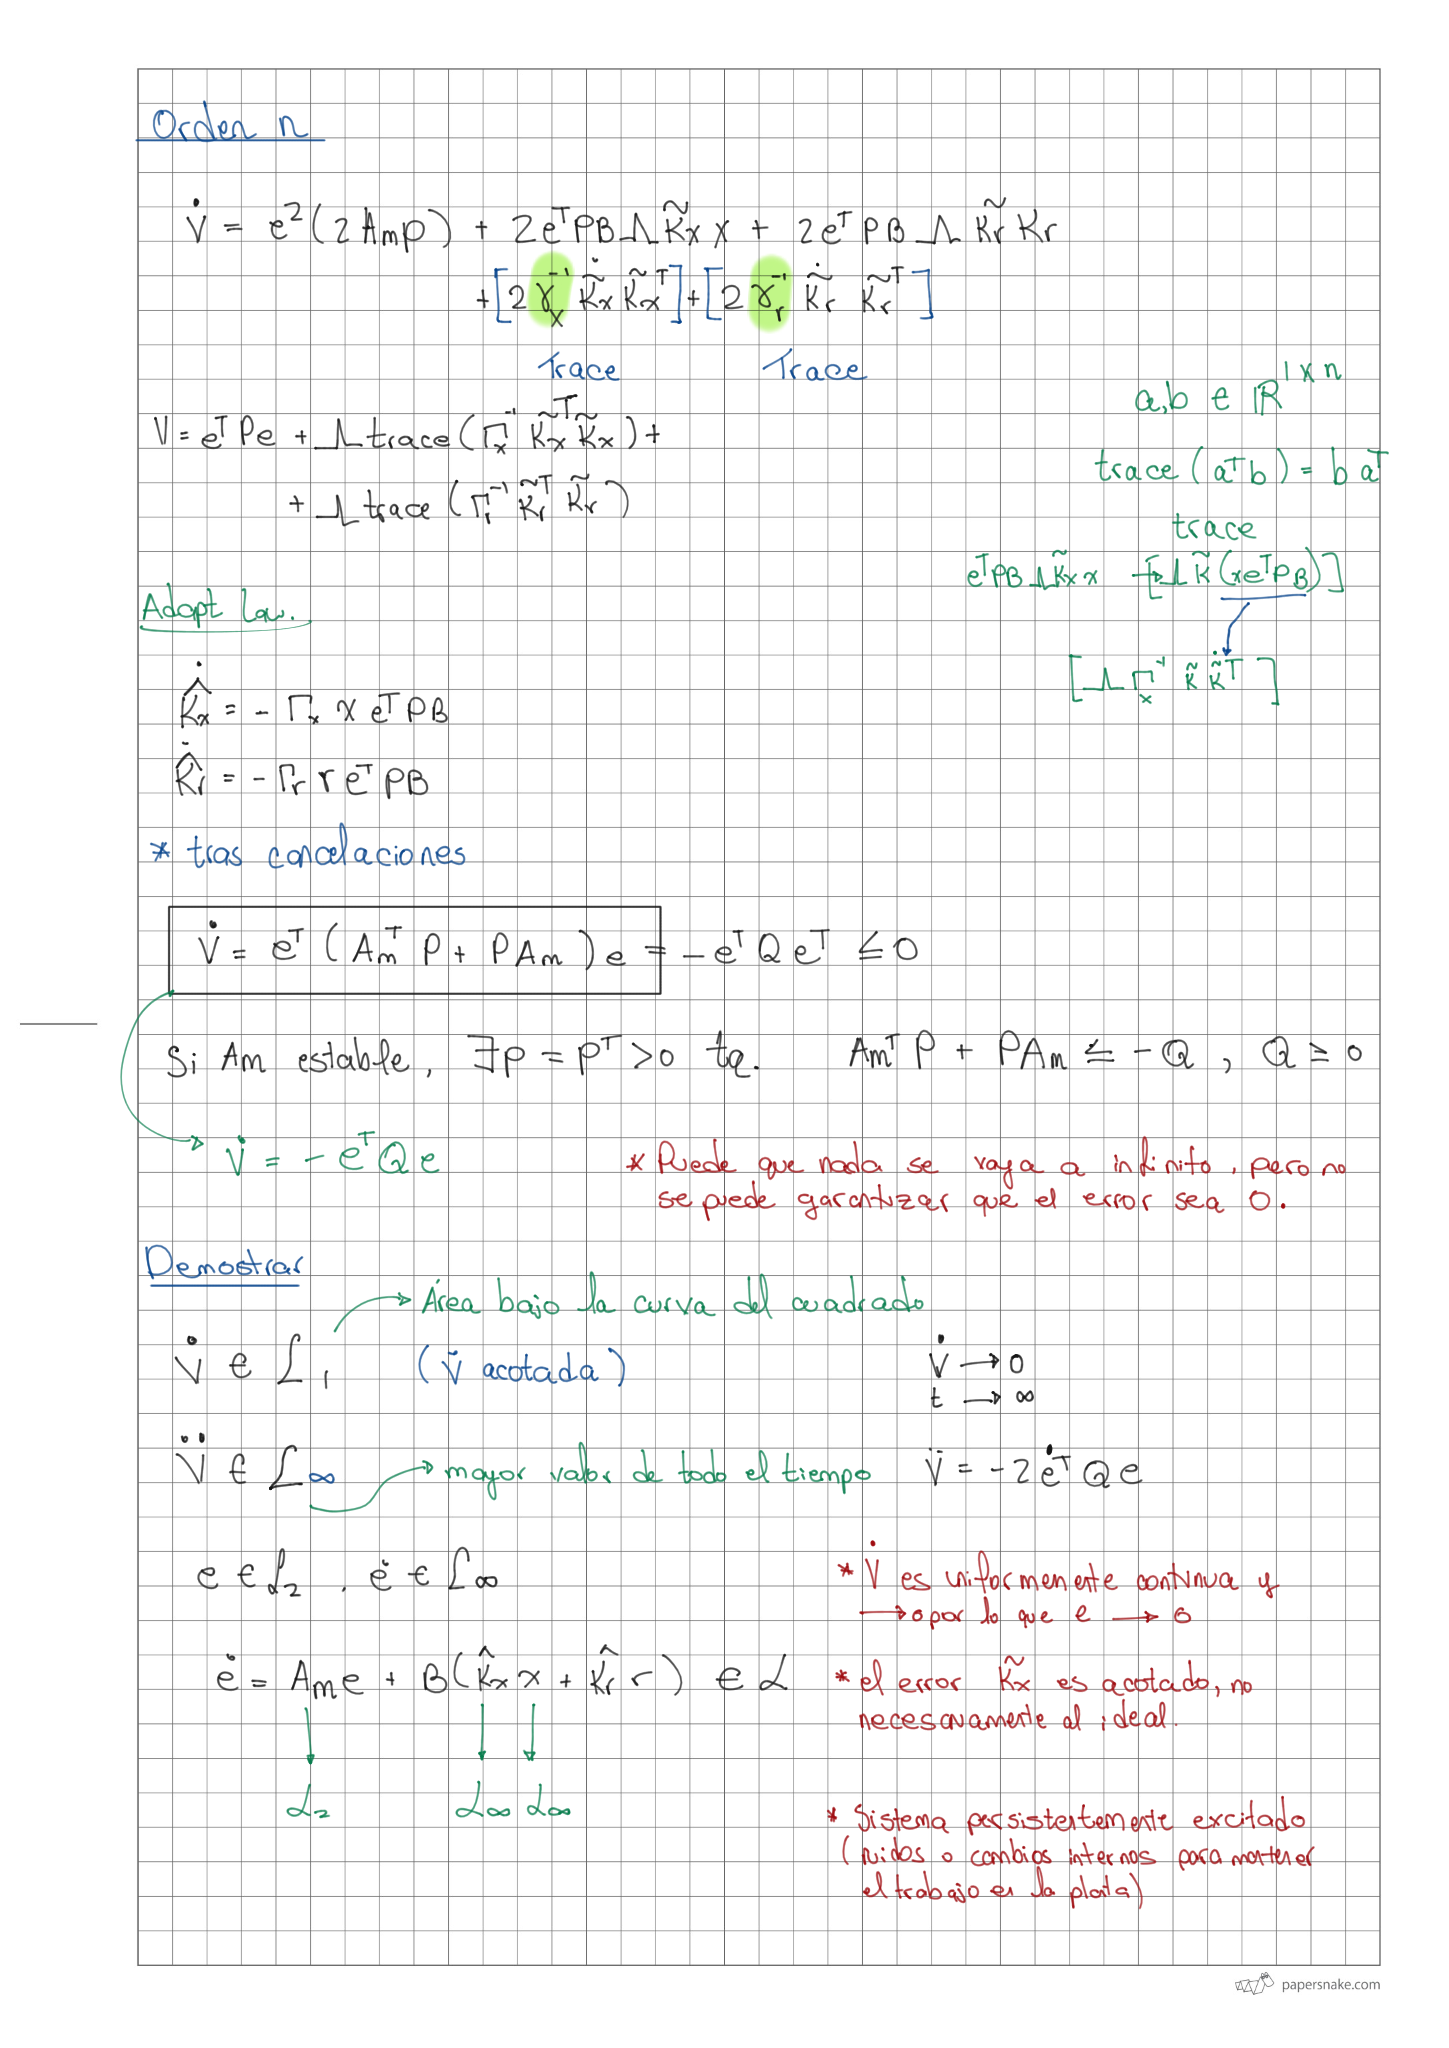 Orden n
V̇ = e²(2Amp) + 2eᵀPBΛK̃x x + 2eᵀPBΛ K̃r Kr
+[2 γx⁻¹ K̃̇x K̃xᵀ]+[2 γr⁻¹ K̃̇r K̃rᵀ]
Trace Trace
V = eᵀPe + Λtrace(Γx⁻¹ K̃xᵀ K̃x) +
+ Λtrace(Γr⁻¹ K̃rᵀ K̃r)
a,b ∈ ℝ¹ˣⁿ
trace(aᵀb) = b aᵀ
trace
eᵀPBΛK̃x x → [Λ K̃ (xeᵀPB)]
[Λ Γx⁻¹ K̃ K̃̇ᵀ]
Adapt law.
K̂̇x = - Γx x eᵀPB
K̂̇r = - Γr r eᵀPB
* tras cancelaciones
V̇ = eᵀ(Amᵀ P + PAm)e = - eᵀQeᵀ ≤ 0
Si Am estable, ∃P = Pᵀ > 0 tq. Amᵀ P + PAm ≤ - Q, Q ≥ 0
V̇ = - eᵀQe
* Puede que nada se vaya a infinito, pero no
se puede garantizar que el error sea 0.
Demostrar
→ Área bajo la curva del cuadrado
V̇ ∈ ℒ₁ (V̈ acotada)
V̇ → 0
t → ∞
V̈ ∈ ℒ∞ → mayor valor de todo el tiempo
V̈ = -2ėᵀQe
e ∈ ℒ₂, ė ∈ ℒ∞
* V̇ es uniformemente continua y
→ 0 por lo que e → 0
ė = Ame + B(K̂x x + K̂r r) ∈ ℒ
ℒ₂ ℒ∞ ℒ∞
* el error K̃x es acotado, no
necesariamente al ideal.
* Sistema persistentemente excitado
(ruidos o cambios internos para mantener
el trabajo en la planta)
papersnake.com